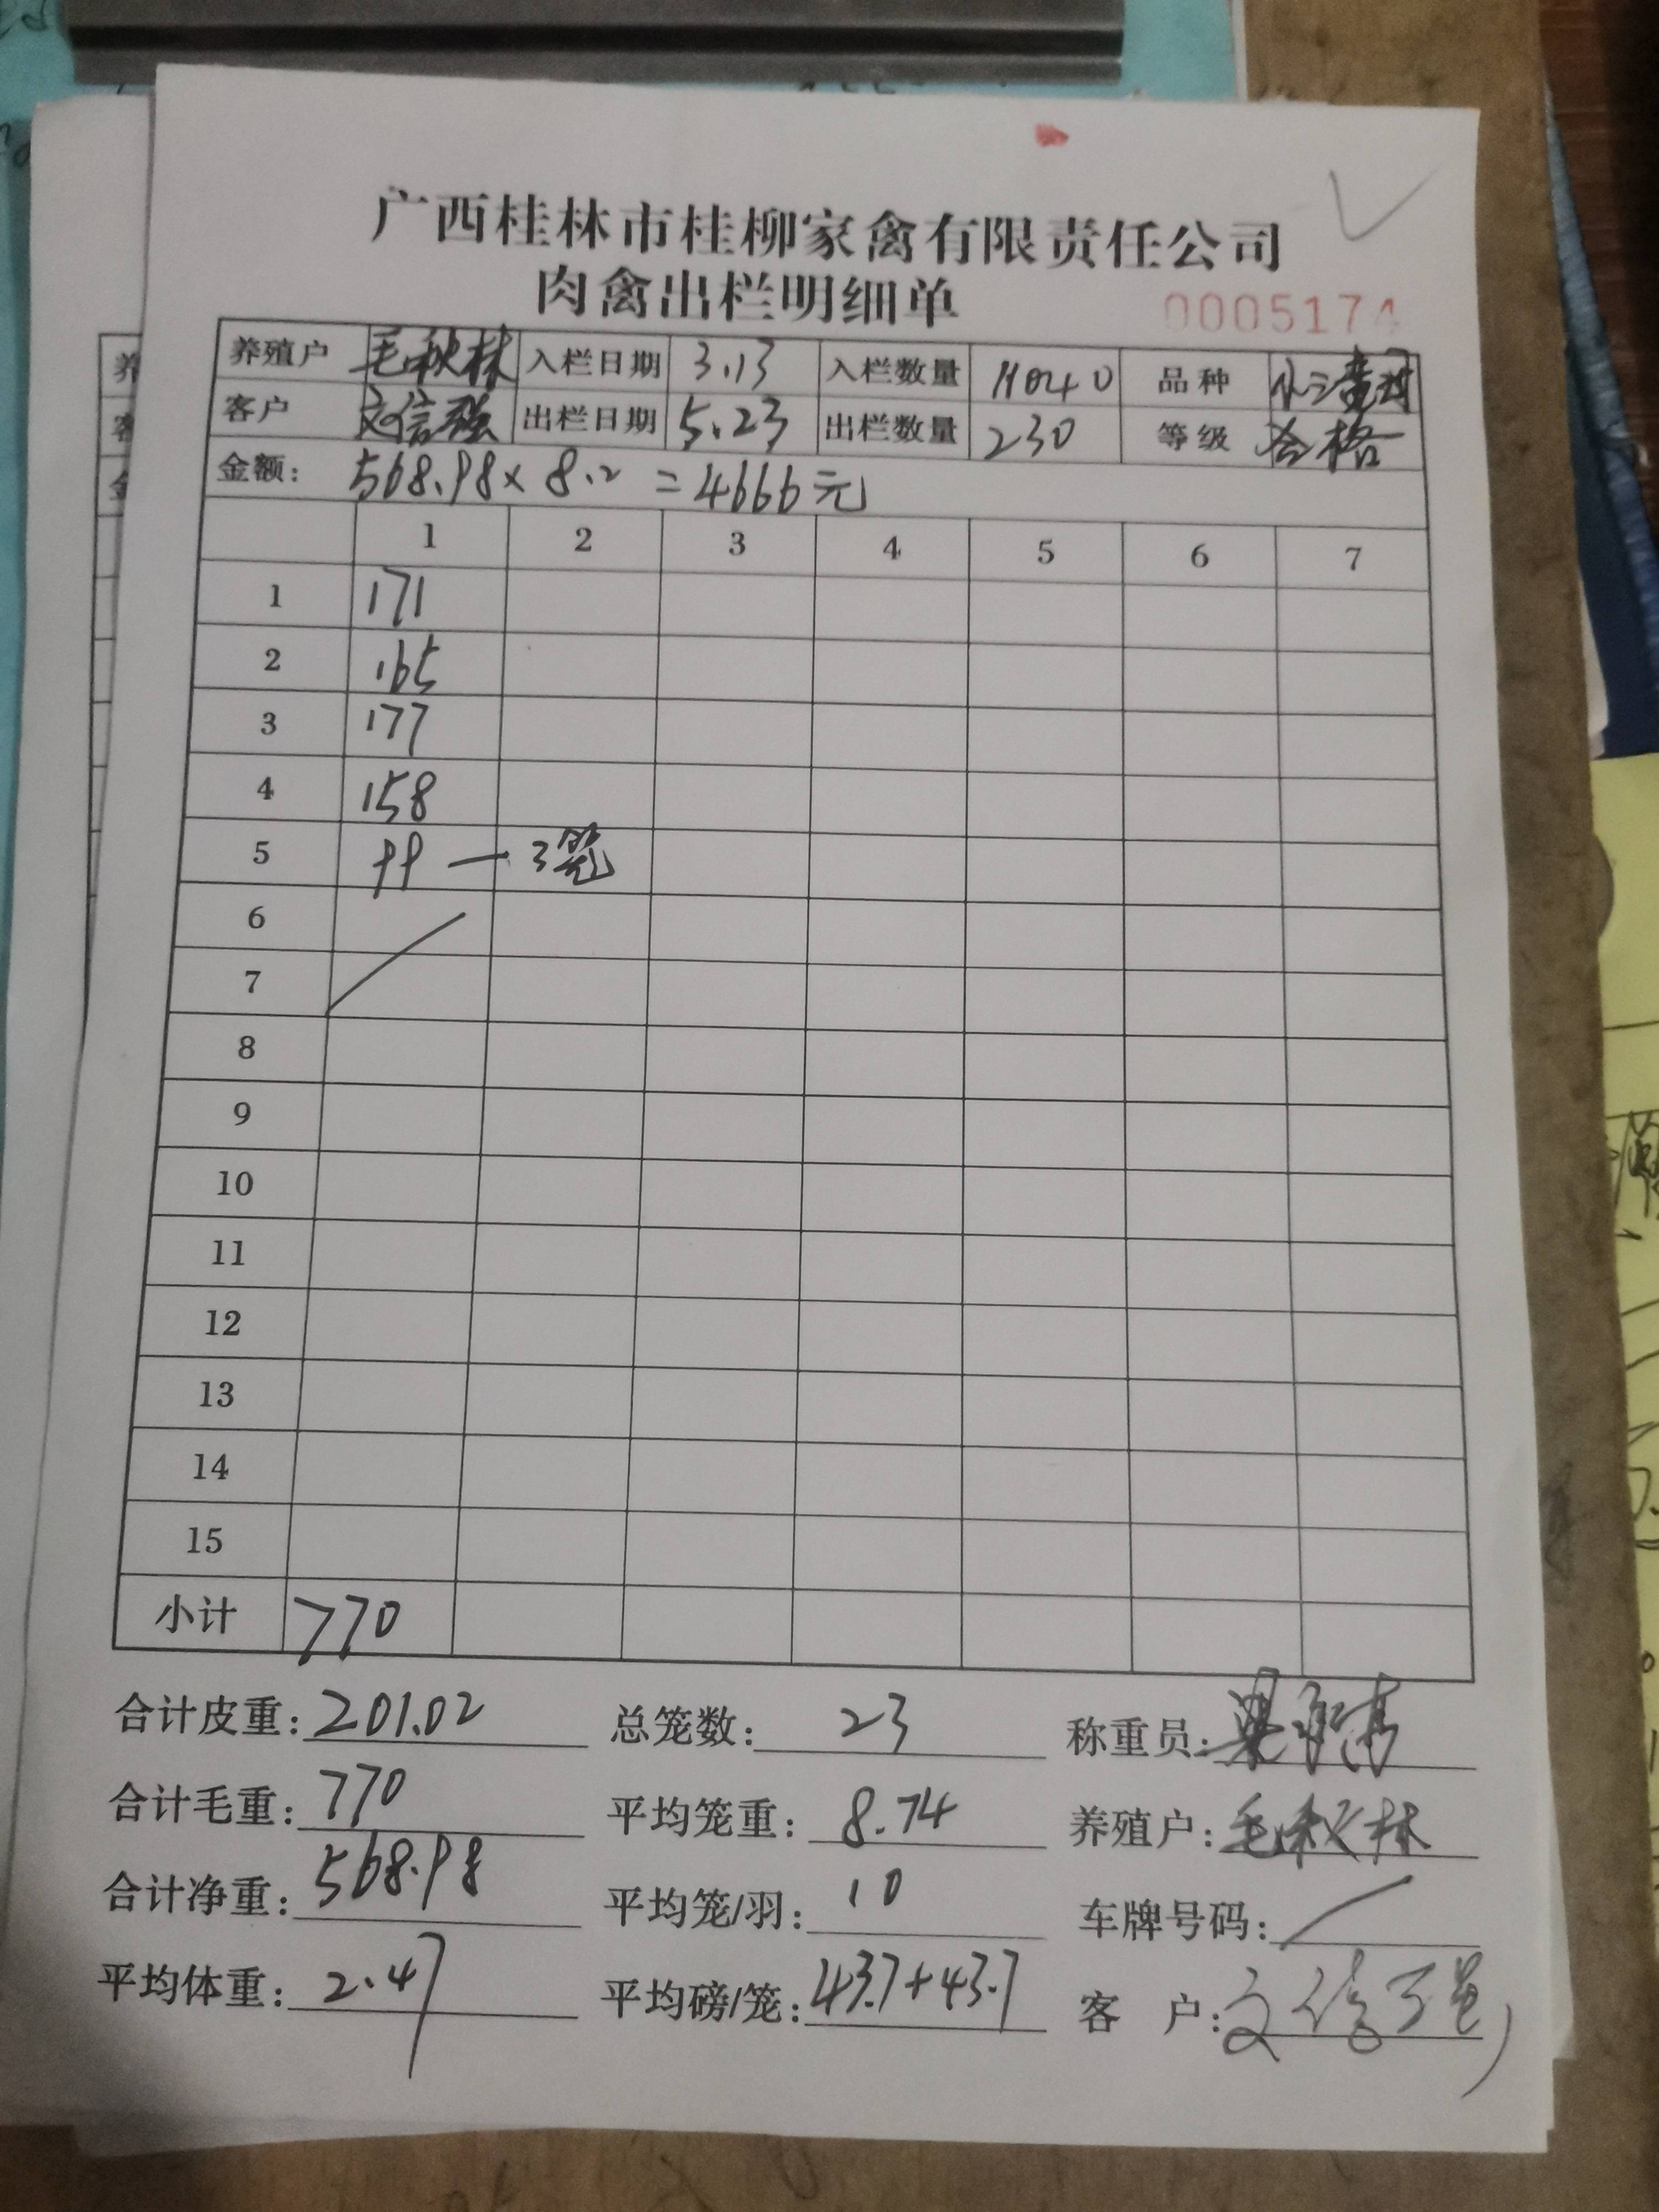 广西桂林市桂柳家禽有限责任公司
肉禽出栏明细单
0005174
养殖户 毛秋林 入栏日期 3.13 入栏数量 11040 品种 小三黄
客户 文信强 出栏日期 5.23 出栏数量 230 等级 合格
金额: 568.98 x 8.2 = 4666元
1 2 3 4 5 6 7
1 171
2 165
3 177
4 158
5 99 — 3笼
6
7
8
9
10
11
12
13
14
15
小计 770
合计皮重: 201.02 总笼数: 23 称重员:
合计毛重: 770 平均笼重: 8.74 养殖户: 毛秋林
合计净重: 568.98 平均笼/羽: 10 车牌号码: /
平均体重: 2.47 平均磅/笼: 43.7+43.7 客 户: 文信强